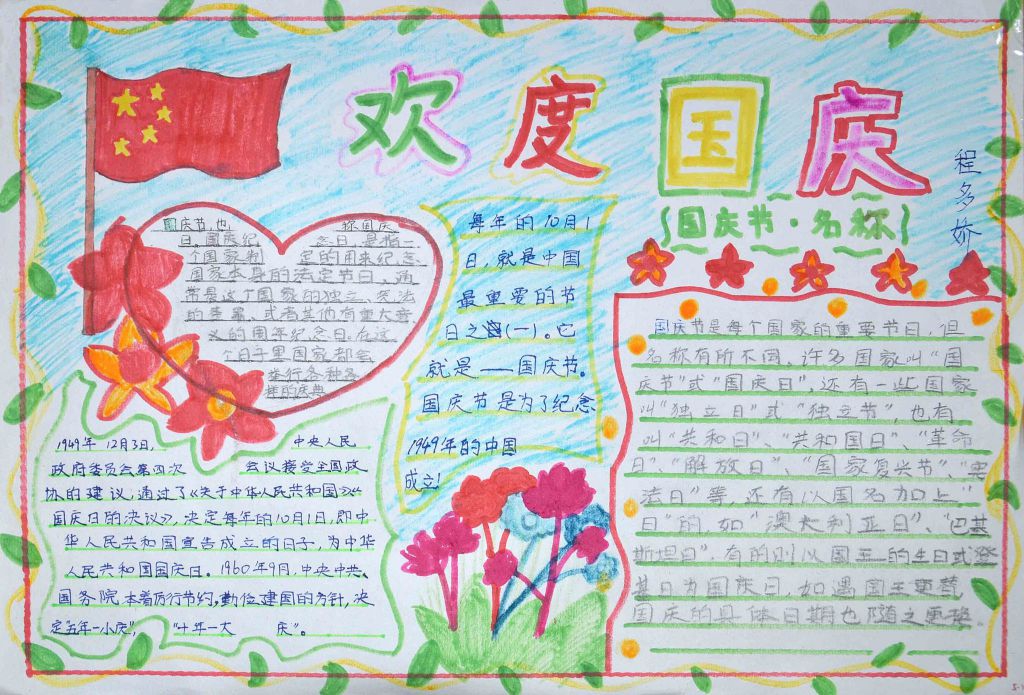 欢度国庆
程多娇
国庆节·名称
国庆节,也称国庆
日、国庆纪念日,是指一
个国家制定的用来纪念
国家本身的法定节日。通
常是这个国家的独立、宪法
的签署、或者其他有重大意
义的周年纪念日。在这
个日子里国家都会
举行各种各
样的庆典
每年的10月1
日,就是中国
最重要的节
日之(一)。它
就是——国庆节。
国庆节是为了纪念
1949年的中国
成立!
1949年 12月3日, 中央人民
政府委员会第四次 会议接受全国政
协的建议,通过了《关于中华人民共和国》《
国庆日的决议》,决定每年的10月1日,即中
华人民共和国宣告成立的日子,为中华
人民共和国国庆日。1960年9月,中央中共、
国务院本着厉行节约,勤俭建国的方针,决
定“五年一小庆”,“十年一大 庆”。
国庆节是每个国家的重要节日,但
名称有所不同。许多国家叫“国
庆节”或“国庆日”,还有一些国家
叫“独立日”或“独立节”,也有
叫“共和日”、“共和国日”、“革命
日”、“解放日”、“国家复兴节”、“宪
法日”等,还有以国名加上“
日”的,如“澳大利亚日”、“巴基
斯坦日”,有的则以国王的生日或登
基日为国庆日,如遇国王更替,
国庆的具体日期也随之更换。